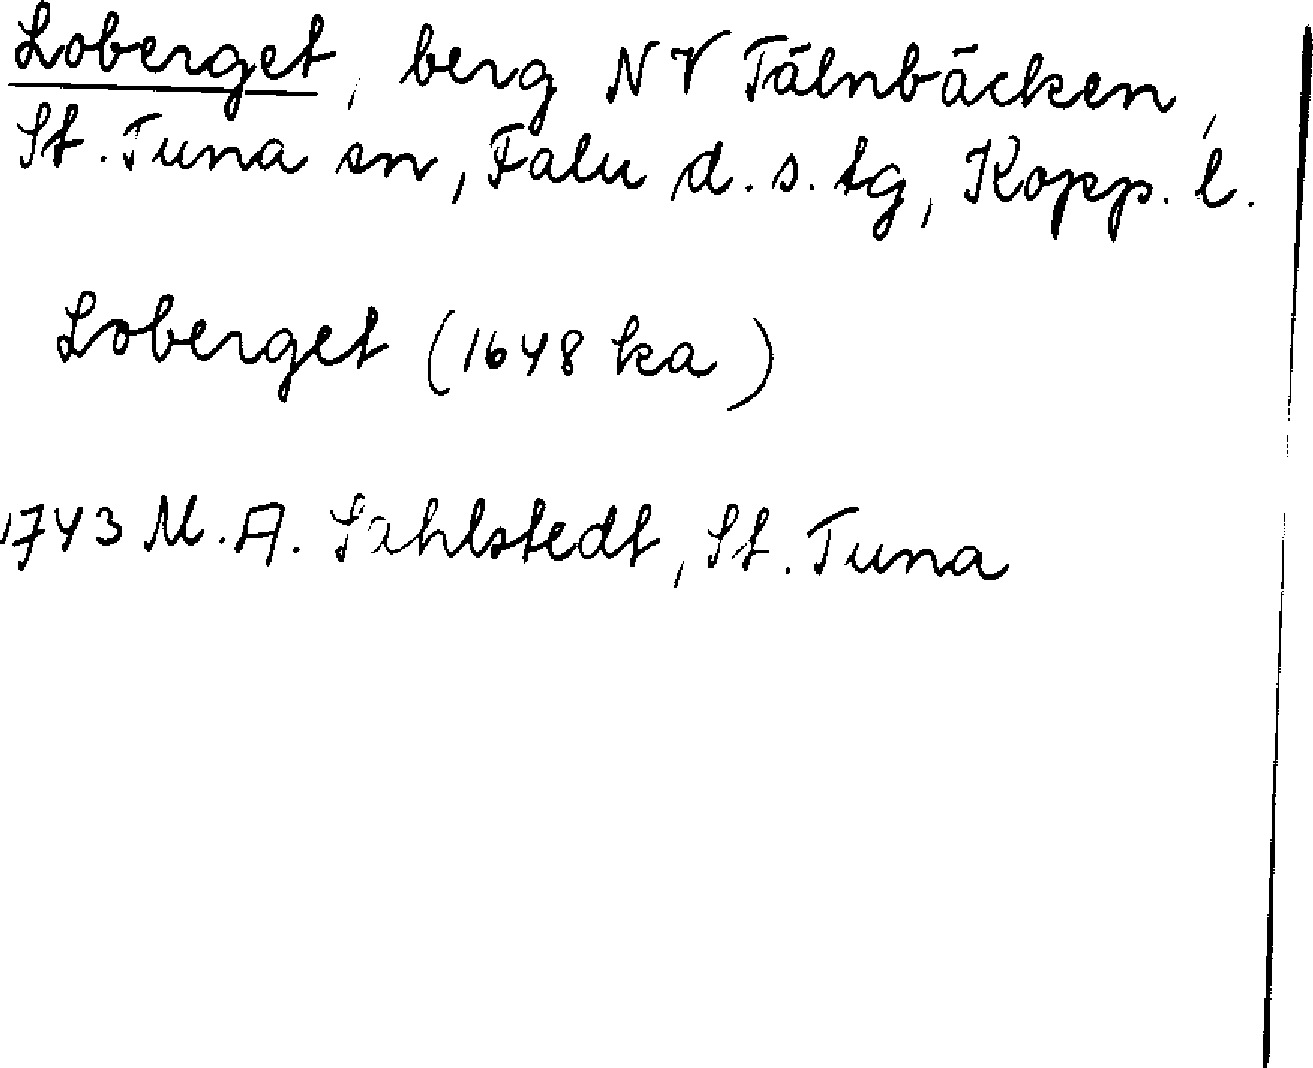 Loberget, berg NV Tälnbäcken,
St. Tuna sn, Falu d. s. tg, Kopp. l.
Loberget (1648 ka)
1743 M. A. Sahlstedt, St. Tuna